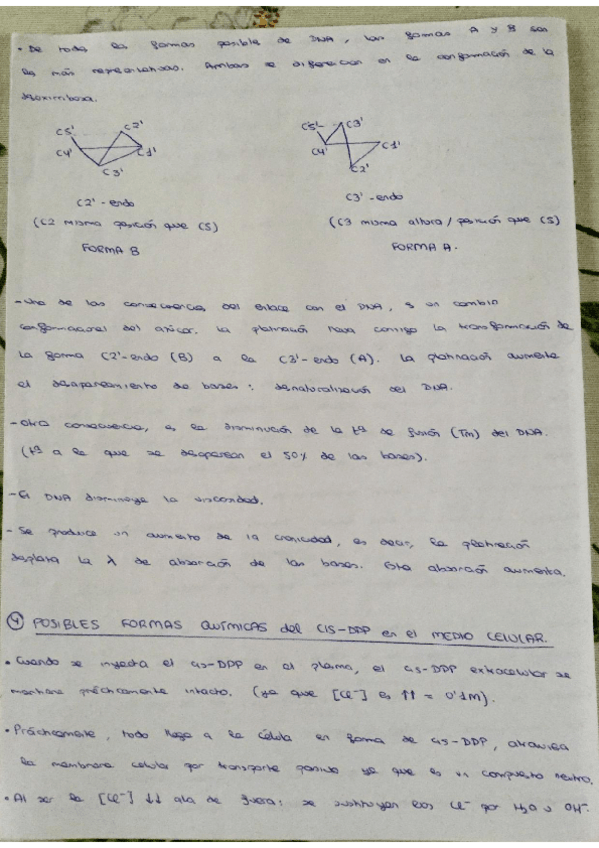 · De todas las formas posibles de DNA, las formas A y B son
las más representativas. Ambas se diferencian en la conformación de la
desoxirribosa.
C5' C2' C4' C1' C3'
C5' C3' C4' C1' C2'
C2'-endo
C3'-endo
(C2 misma posición que C5)
(C3 misma altura/posición que C5)
FORMA B
FORMA A.
- Una de las consecuencias del enlace con el DNA, es un cambio
conformacional del azúcar. La platinación lleva consigo la transformación de
la forma C2'-endo (B) a la C3'-endo (A). La platinación aumenta
el desapareamiento de bases: desnaturalización del DNA.
- Otra consecuencia, es la disminución de la tª de fusión (Tm) del DNA.
(tª a la que se desaparean el 50% de las bases).
- El DNA disminuye la viscosidad.
- Se produce un aumento de la cronicidad, es decir, la platinación
desplaza la λ de absorción de las bases. Esta absorción aumenta.
④ POSIBLES FORMAS QUÍMICAS del CIS-DDP en el MEDIO CELULAR.
· Cuando se inyecta el cis-DDP en el plasma, el cis-DDP extracelular se
mantiene prácticamente intacto. (ya que [Cl⁻] es ↑↑ = 0'1M).
· Prácticamente, todo llega a la célula en forma de cis-DDP, atraviesa
la membrana celular por transporte pasivo ya que es un compuesto neutro.
· Al ser la [Cl⁻] ↓↓ a la de fuera: se sustituyen los Cl⁻ por H₂O u OH⁻.